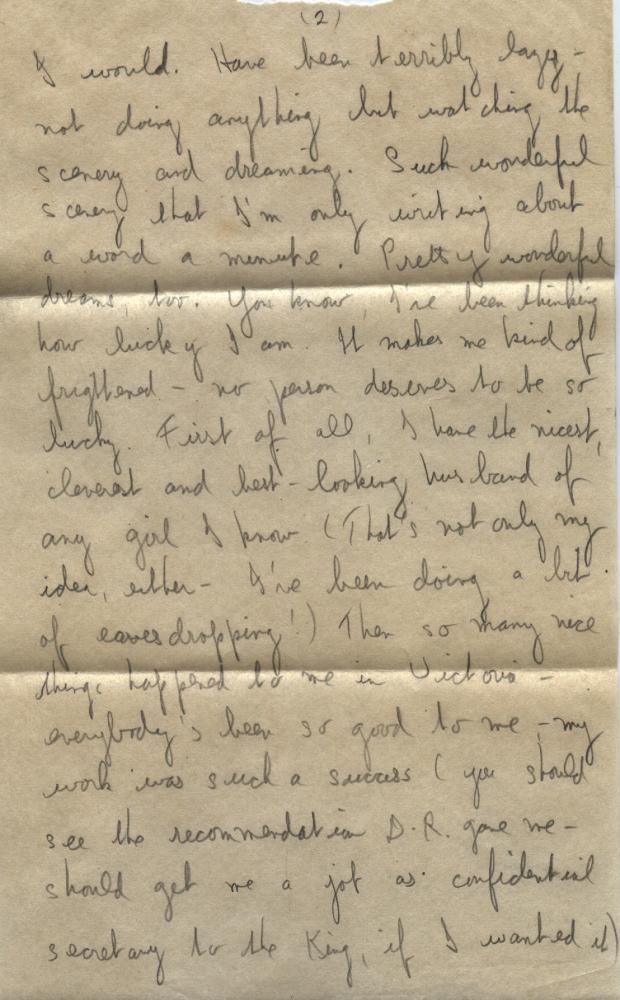 (2)
I would. Have been terribly lazy -
not doing anything but watching the
scenery and dreaming. Such wonderful
scenery that I'm only writing about
a word a minute. Pretty wonderful
dreams, too. You know, I've been thinking
how lucky I am. It makes me kind of
frightened - no person deserves to be so
lucky. First of all, I have the nicest,
cleverest and best-looking husband of
any girl I know (That's not only my
idea, either - I've been doing a bit
of eavesdropping!) Then so many nice
things happened to me in Victoria -
everybody's been so good to me - my
work was such a success (you should
see the recommendation D.R. gave me -
should get me a job as confidential
secretary to the King, if I wanted it)